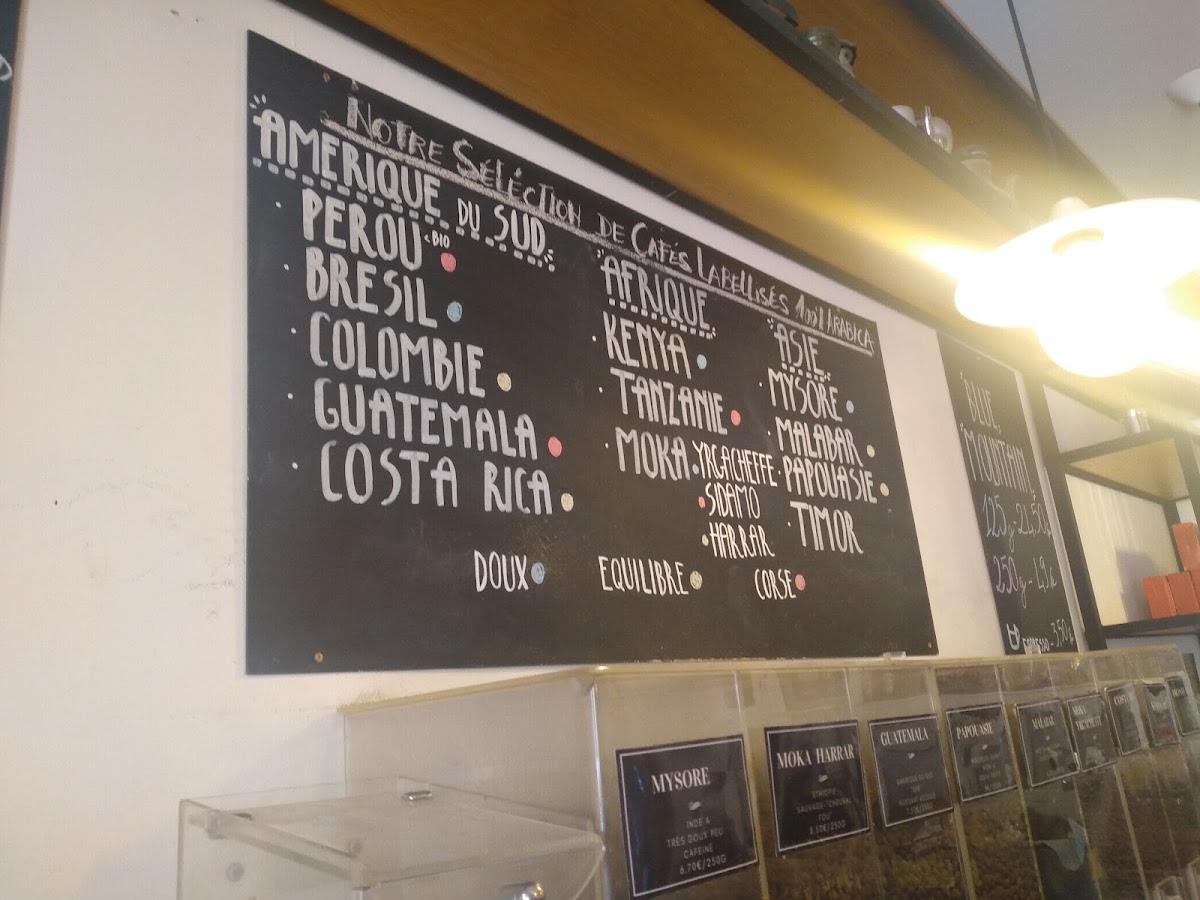 NOTRE SÉLÉCTION DE CAFÉS LABELLISÉS 100% ARABICA
AMERIQUE DU SUD
· PEROU <BIO
· BRESIL
· COLOMBIE
· GUATEMALA
· COSTA RICA
AFRIQUE
· KENYA
· TANZANIE
· MOKA YRGACHEFFE
SIDAMO
HARRAR
ASIE
· MYSORE
· MALABAR
· PAPOUASIE
· TIMOR
DOUX
EQUILIBRE
CORSE
BLUE
MOUNTAIN
125g - 24,50€
ESPRESSO - 3,50€
MYSORE
INDE A
TRÈS DOUX PEU
CAFEINE
6.70€/250G
MOKA HARRAR
ETHIOPIE
8.50€/250G
GUATEMALA
PAPOUASIE
MALABAR
MOKA